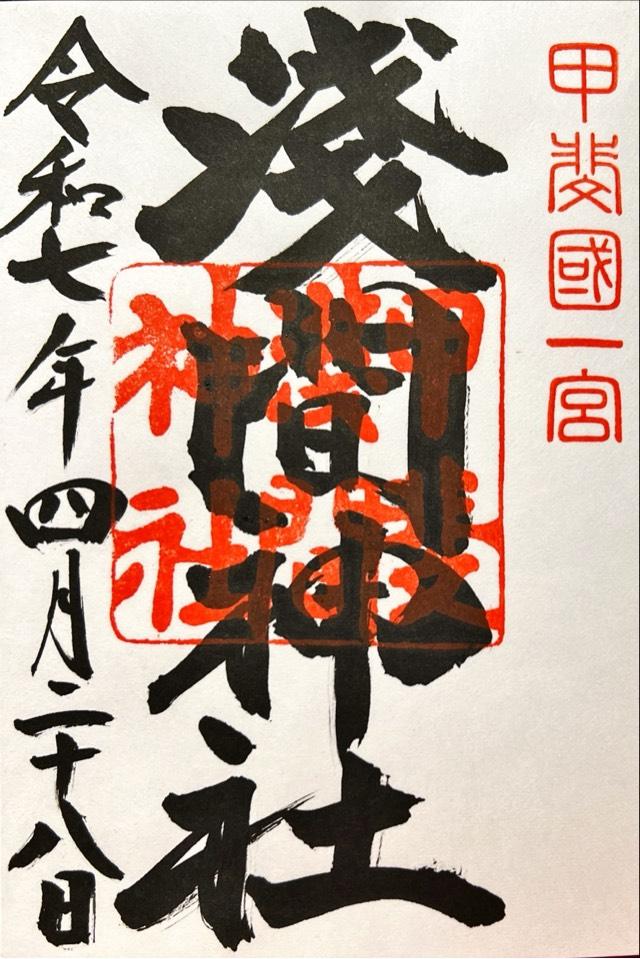 甲斐國一宮
淺間神社
令和七年四月二十八日